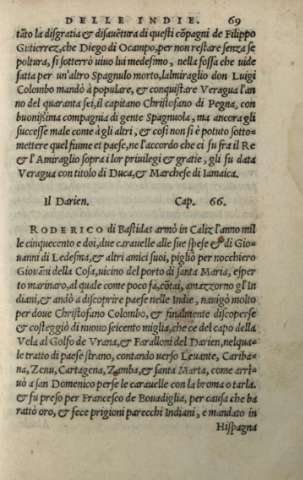 DELLE INDIE. 69
tãto la disgratia & disauẽtura di questi cõpagni de Filippo
Gutierrez, che Diego di Ocampo, per non restare senza se
poltura, si sotterrò uiuo lui medesimo, nella fossa che uide
fatta per un'altro Spagnulo morto, l'almiraglio don Luigi
Colombo mandò à populare, & conquistare Veragua l'an
no del quaranta sei, il capitano Christofano di Pegna, con
buonissima compagnia di gente Spagnuola, ma ancora gli
successe male come à gli altri, & cosi non si è potuto sotto-
mettere quel fiume et paese, ne l'accordo che ci fu fra il Re
& l'Amiraglio sopra i lor priuilegi & gratie, gli fu data
Veragua con titolo di Duca, & Marchese di Iamaica.
Il Darien. Cap. 66.
RODERICO di Bastidas armò in Caliz l'anno mil
le cinquecento e doi, due carauelle alle sue spese & di Gio-
uanni di Ledesma, & altri amici suoi, pigliò per nocchiero
Giouãni della Cosa, uicino del porto di santa Maria, esper
to marinaro, al quale come poco fa, cõtai, amazzorno gl'in
diani, & andò à discoprire paese nelle Indie, nauigò molto
per doue Christofano Colombo, & finalmente discoperse
& costeggiò di nuouo seicento miglia, che ce del capo della
Vela al Golfo de Vrana, & Faralloni del Darien, nelqua-
le tratto di paese strano, contando uerso Leuante, Cariba-
na, Zenu, Cartagena, Zamba, & santa Marta, come arri-
uò a san Domenico perse le carauelle con la broma o tarla.
& fu preso per Francesco de Bouadiglia, per causa che ba
rattò oro, & fece prigioni parecchi Indiani, e mandato in
Hispagna